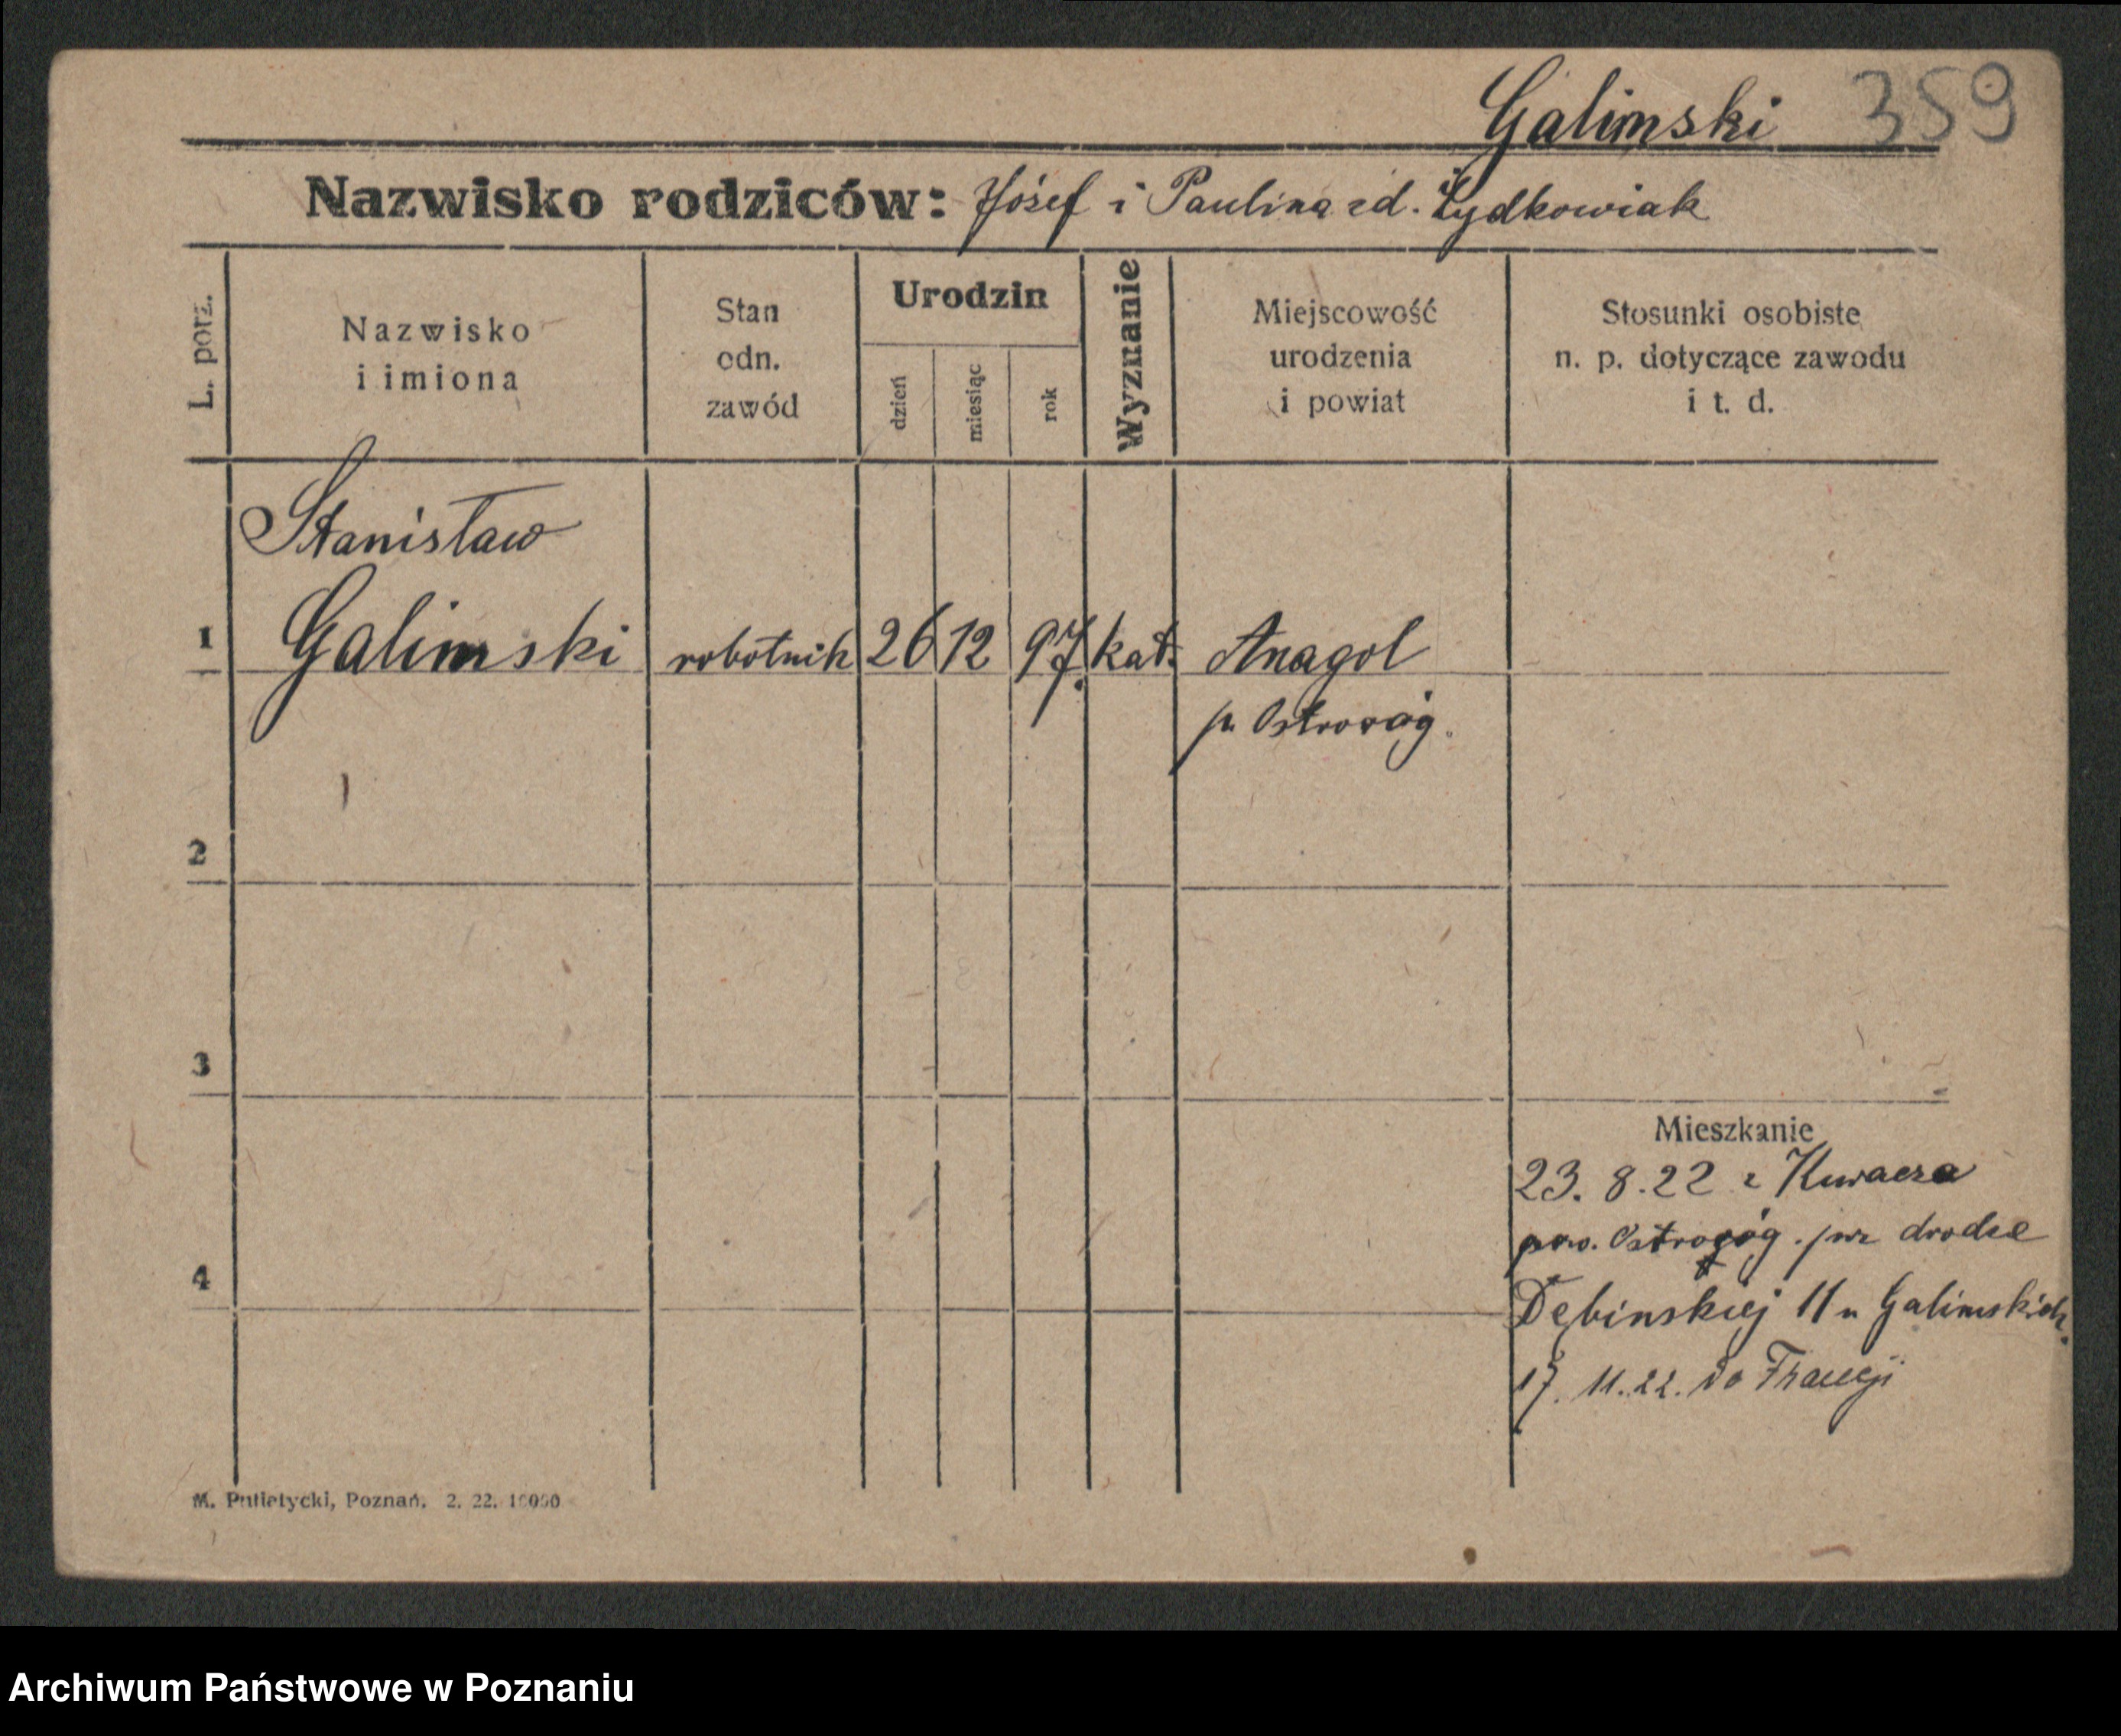 Galimski 359
Nazwisko rodziców: Józef i Paulina zd. Żydkowiak
L. porz.
Nazwisko
i imiona
Stan
odn.
zawód
Urodzin
dzień
miesiąc
rok
Wyznanie
Miejscowość
urodzenia
i powiat
Stosunki osobiste
n. p. dotyczące zawodu
i t. d.
Stanisław
1 Galimski robotnik 26 12 97. kat. Anagol
p. Ostroróg.
2
3
Mieszkanie
23. 8. 22 z
pow. Ostroróg. prz drodze
4
Dębinskiej 11 u Galimskich.
17. 11. 22. do Francji
M. Putiatycki, Poznań. 2. 22. 10000
Archiwum Państwowe w Poznaniu